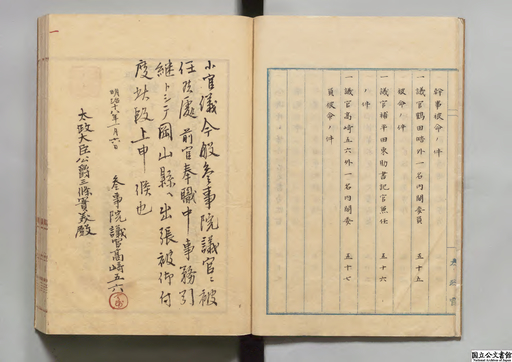 幹事被命ノ件
一議官鶴田晧外一名内閣委員
被命ノ件 五十五
一議官補平田東助書記官兼任
ノ件 五十六
一議官高崎五六外一名内閣委
員被命ノ件 五十七
小官儀今般参事院議官ニ被
任候處前官奉職中事務引
継トシテ岡山縣ヘ出張被仰付
度此段上申候也
明治十八年一月六日
参事院議官高崎五六
太政大臣公爵三條實美殿
国立公文書館
National Archives of Japan